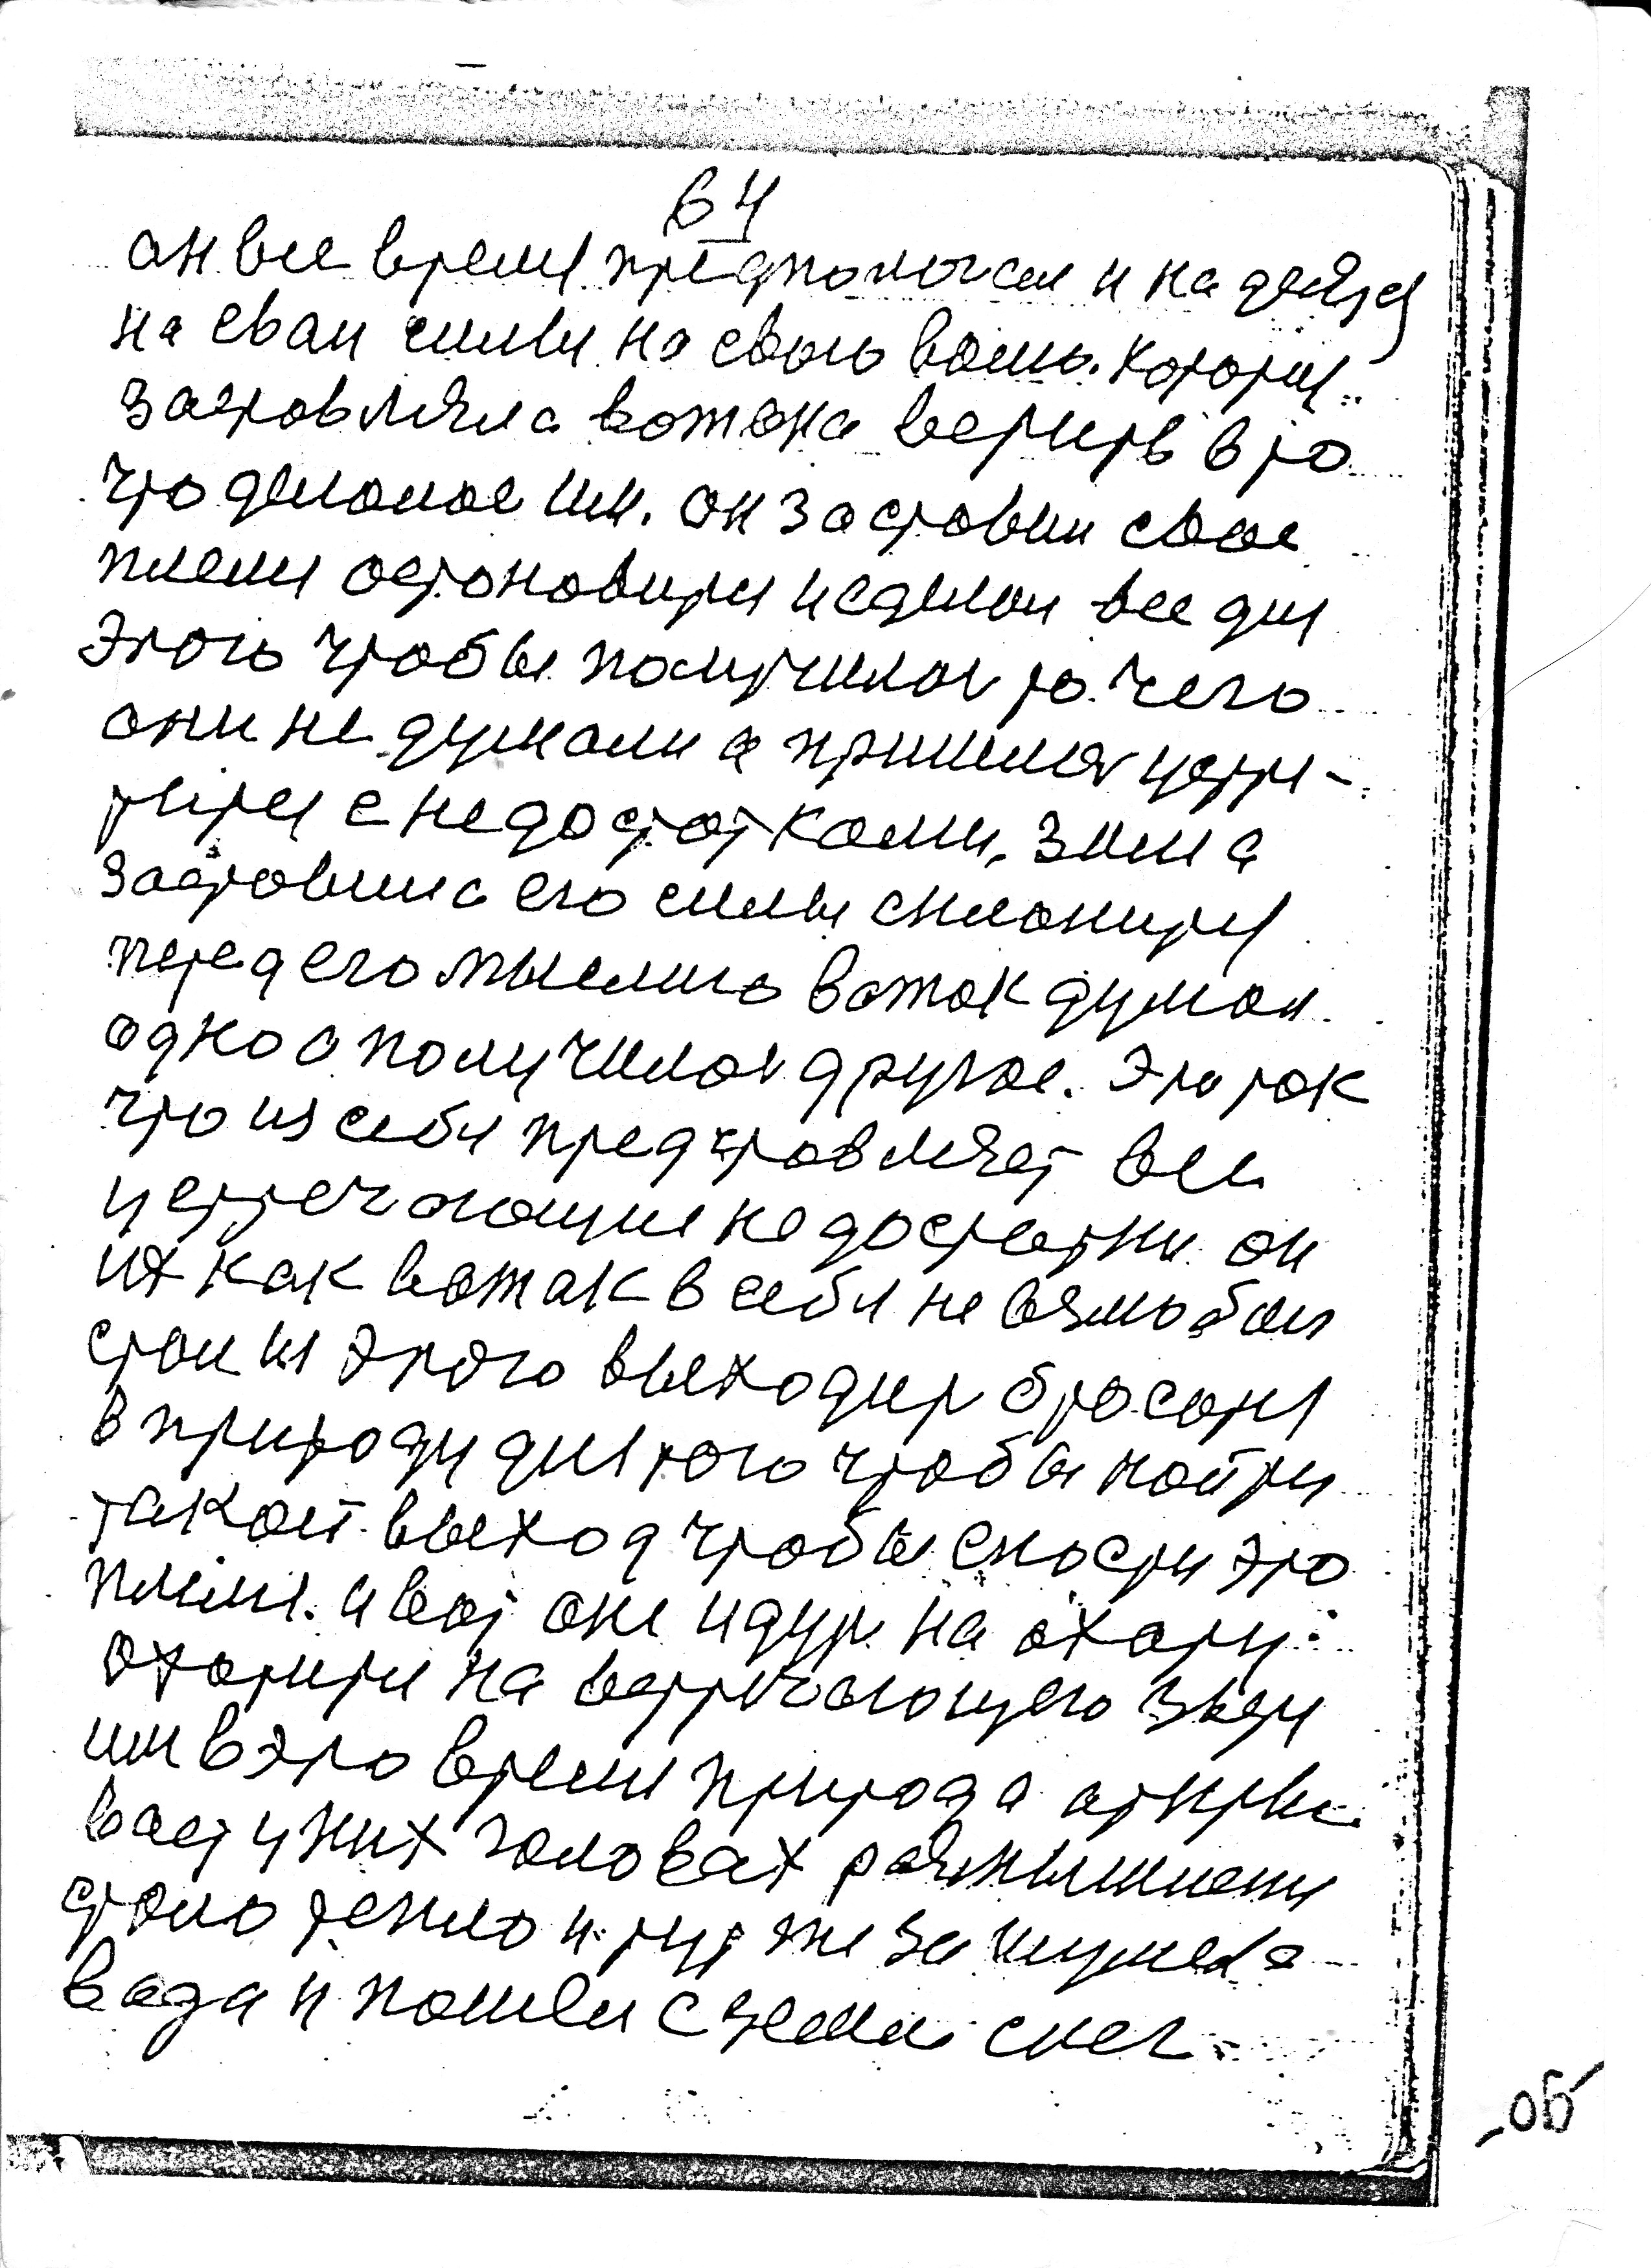 64
он все время предпологал и надеялся
на сваи силы на свою волю. Которая
заставляла вожака верить в то
что делалось им. он заставил свое
племя остоновится и сделал все для
этого чтобы получилось то чего
они не думали а пришлось устре-
титься с недостатками, зима
заставила его силы склонится
перед его мыслию вожак думал
одно а получилось другое. Это так
что из себя представляет все
устречающие недостатки он
их как вожак в себя не взлюбил
стал из этого выходить бросатся
в природу для того чтобы найти
такой выход чтобы спасти это
племя. и вот они идут на охоту
охотится на встречающего зверя
им в это время природа открыва
вает у них головах размышления
стало тепло и тут же зашумела
вода и пошел с земли снег.
об